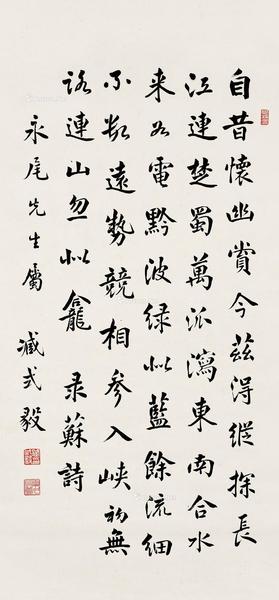 自昔懷幽賞今茲得縱探長
江連楚蜀萬派瀉東南合水
来如電黔波緑似藍餘流細
不數遠勢競相參入峽初無
路連山忽似龕 录蘇詩
永尾先生屬 臧式毅